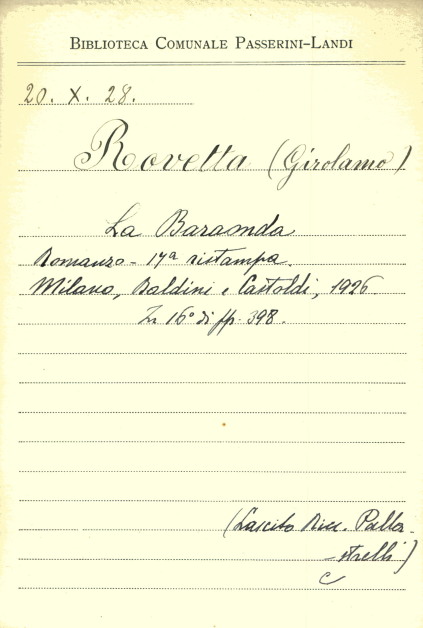 BIBLIOTECA COMUNALE PASSERINI-LANDI
20. X. 28.
Rovetta (Girolamo)
La Baraonda
Romanzo - 17ª ristampa.
Milano, Baldini e Castoldi, 1926
In 16° di pp. 398.
(Lascito Ricc. Palla-
strelli)